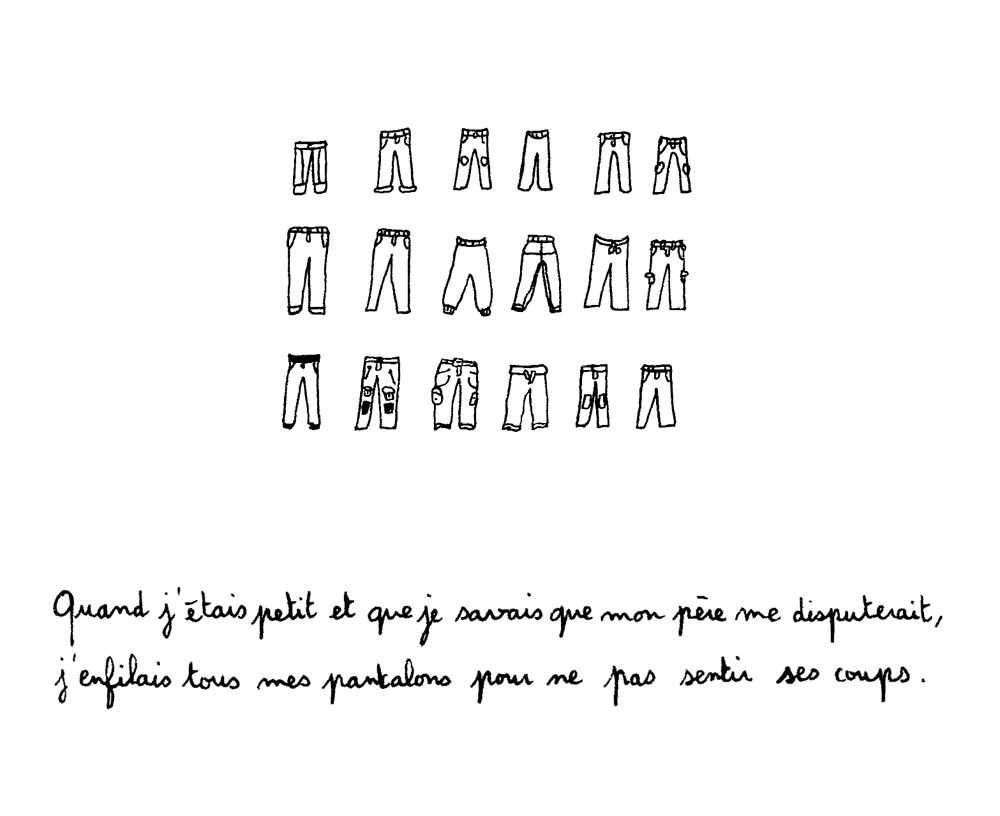 Quand j'étais petit et que je savais que mon père me disputerait,
j'enfilais tous mes pantalons pour ne pas sentir ses coups.